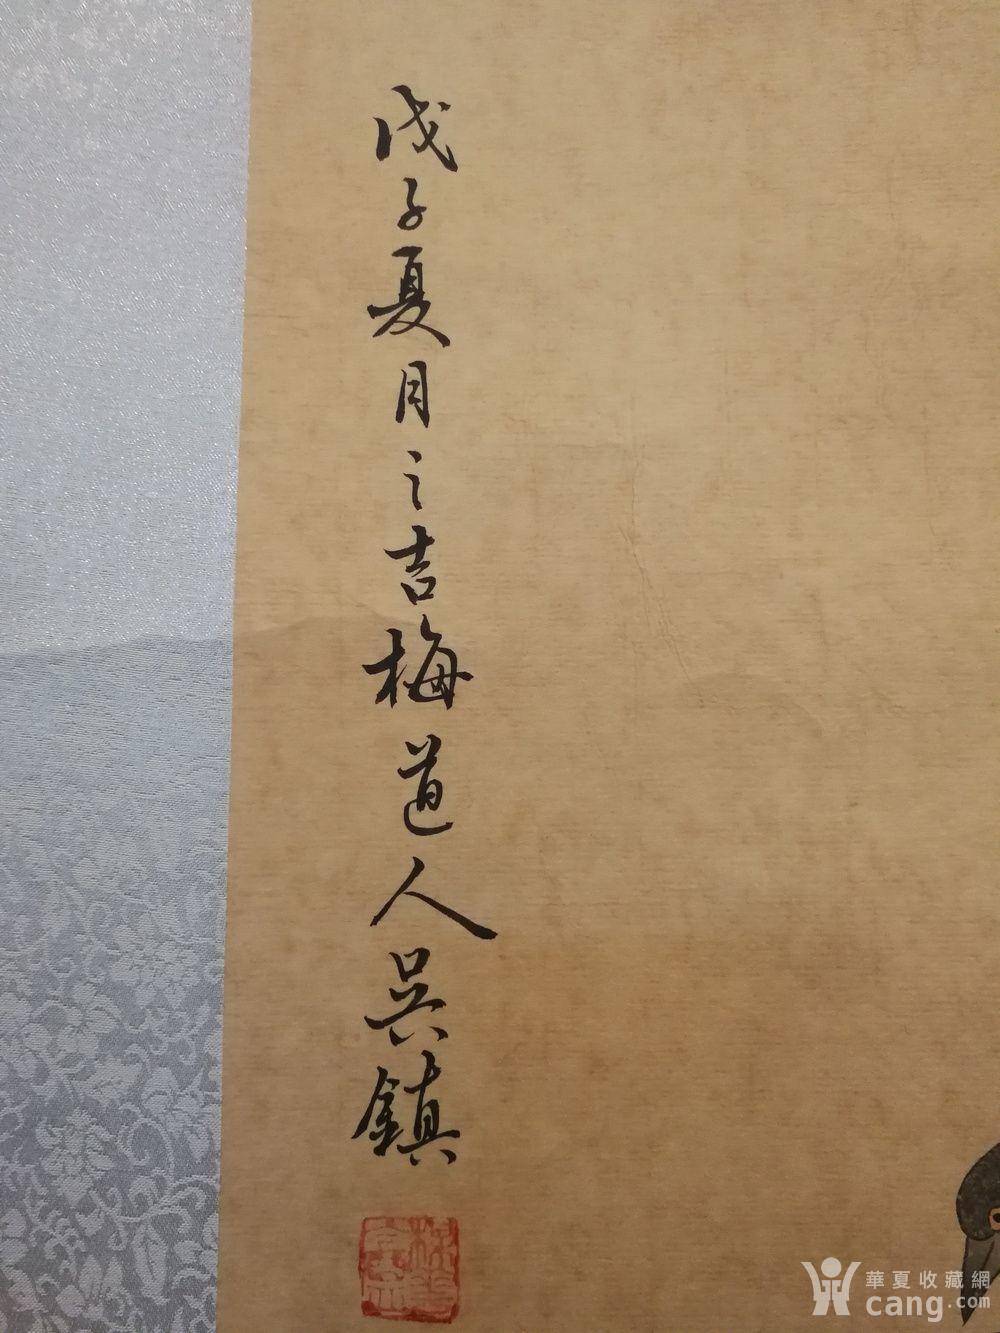 戊子夏月之吉梅道人吳鎮
華夏收藏網
cang.com